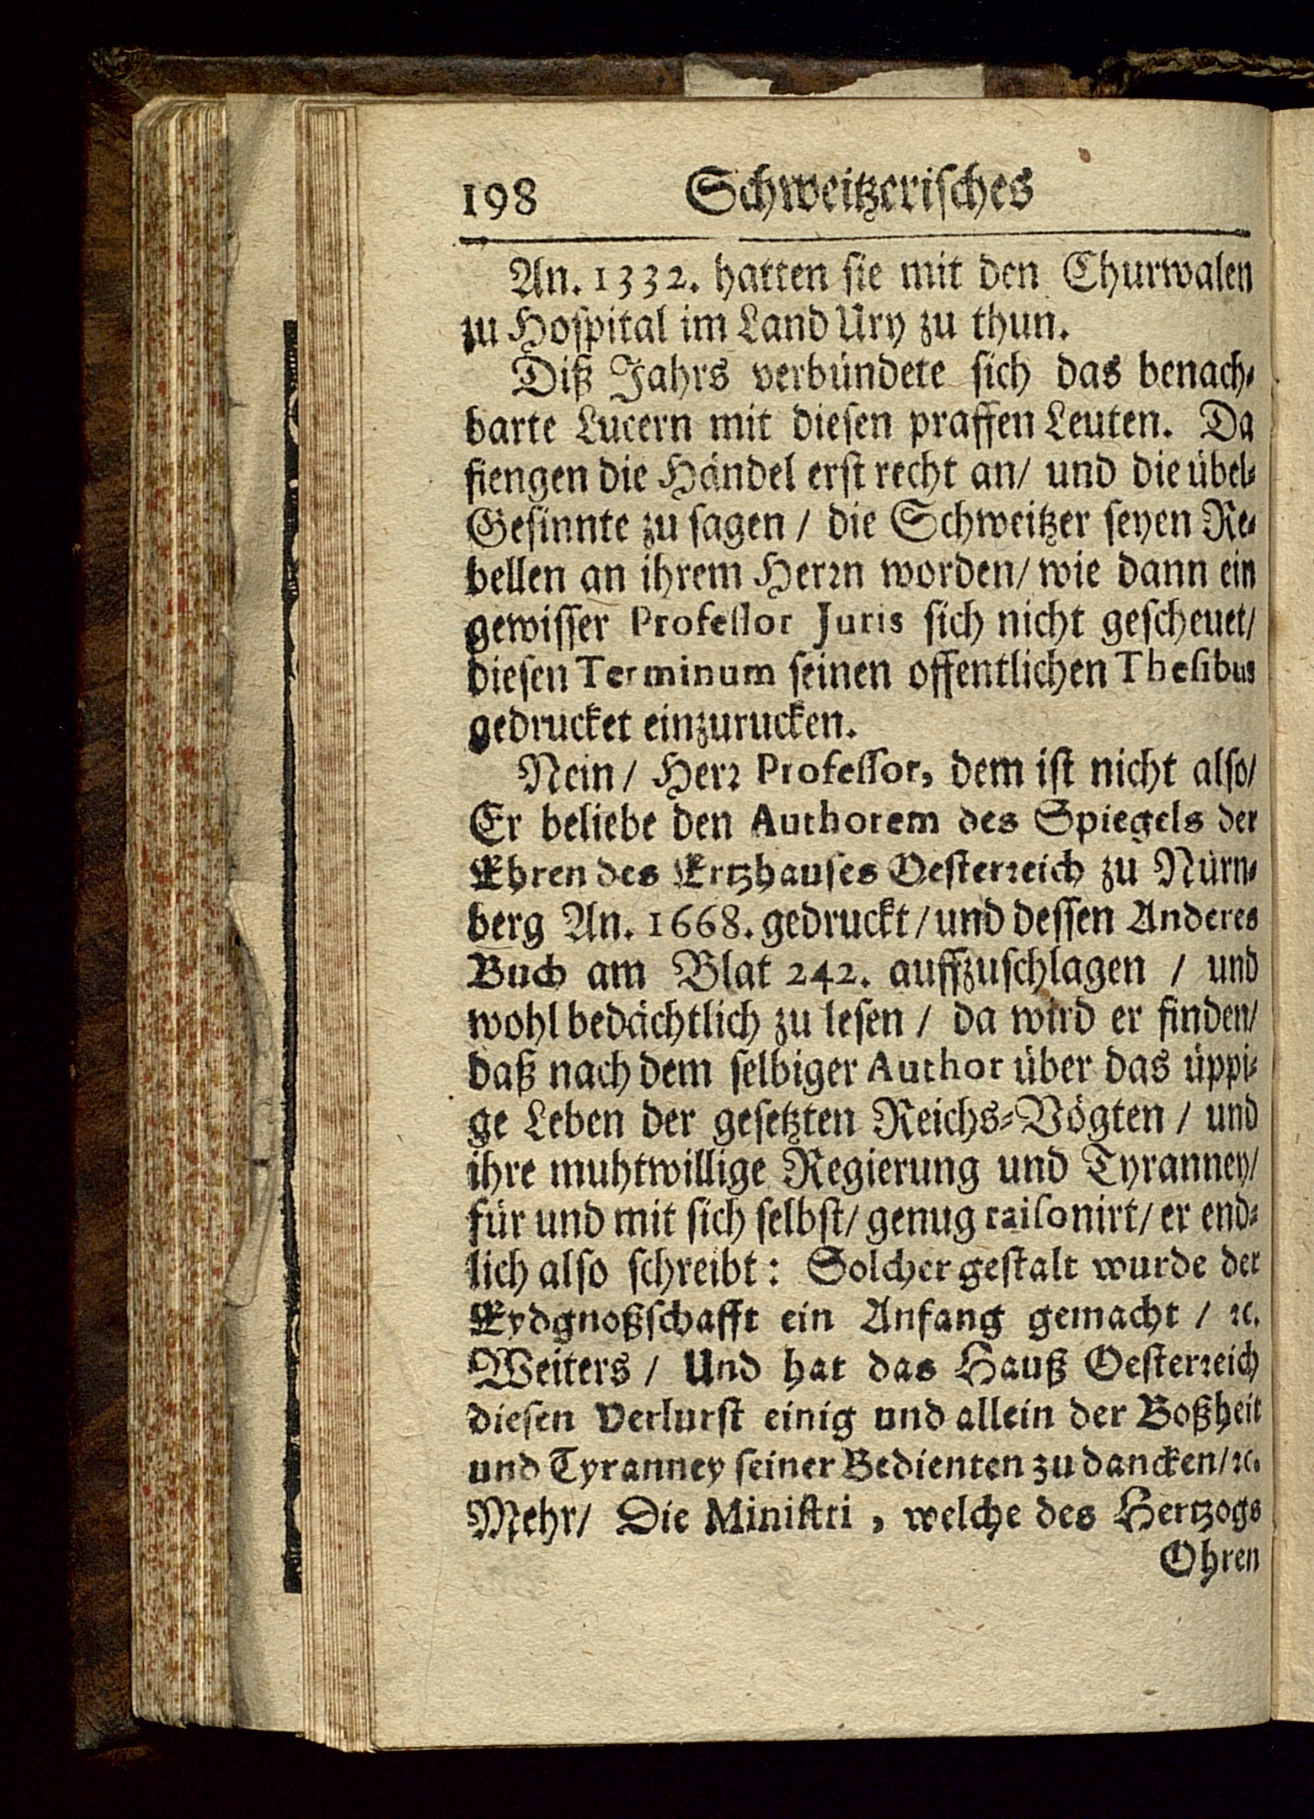 198 Schweitzerisches
An. 1332. hatten sie mit den Churwalen
zu Hospital im Land Ury zu thun.
Diß Jahrs verbündete sich das benach-
barte Lucern mit diesen praffen Leuten. Da
fiengen die Händel erst recht an/ und die übel-
Gesinnte zu sagen / die Schweitzer seyen Re-
bellen an ihrem Herrn worden/ wie dann ein
gewisser Professor Juris sich nicht gescheuet/
diesen Terminum seinen offentlichen Thesibus
gedrucket einzurucken.
Nein / Herr Professor, dem ist nicht also/
Er beliebe den Authorem des Spiegels der
Ehren des Ertzhauses Oesterreich zu Nürn-
berg An. 1668. gedruckt / und dessen Anderes
Buch am Blat 242. auffzuschlagen / und
wohl bedächtlich zu lesen / da wird er finden/
daß nach dem selbiger Author über das üppi-
ge Leben der gesetzten Reichs-Vögten / und
ihre muhtwillige Regierung und Tyranney/
für und mit sich selbst/ genug raisonirt/ er end-
lich also schreibt: Solcher gestalt wurde der
Eydgnoßschafft ein Anfang gemacht / ꝛc.
Weiters / Und hat das Hauß Oesterreich
diesen Verlurst einig und allein der Boßheit
und Tyranney seiner Bedienten zu dancken/ꝛc.
Mehr/ Die Ministri, welche des Hertzogs
Ohren